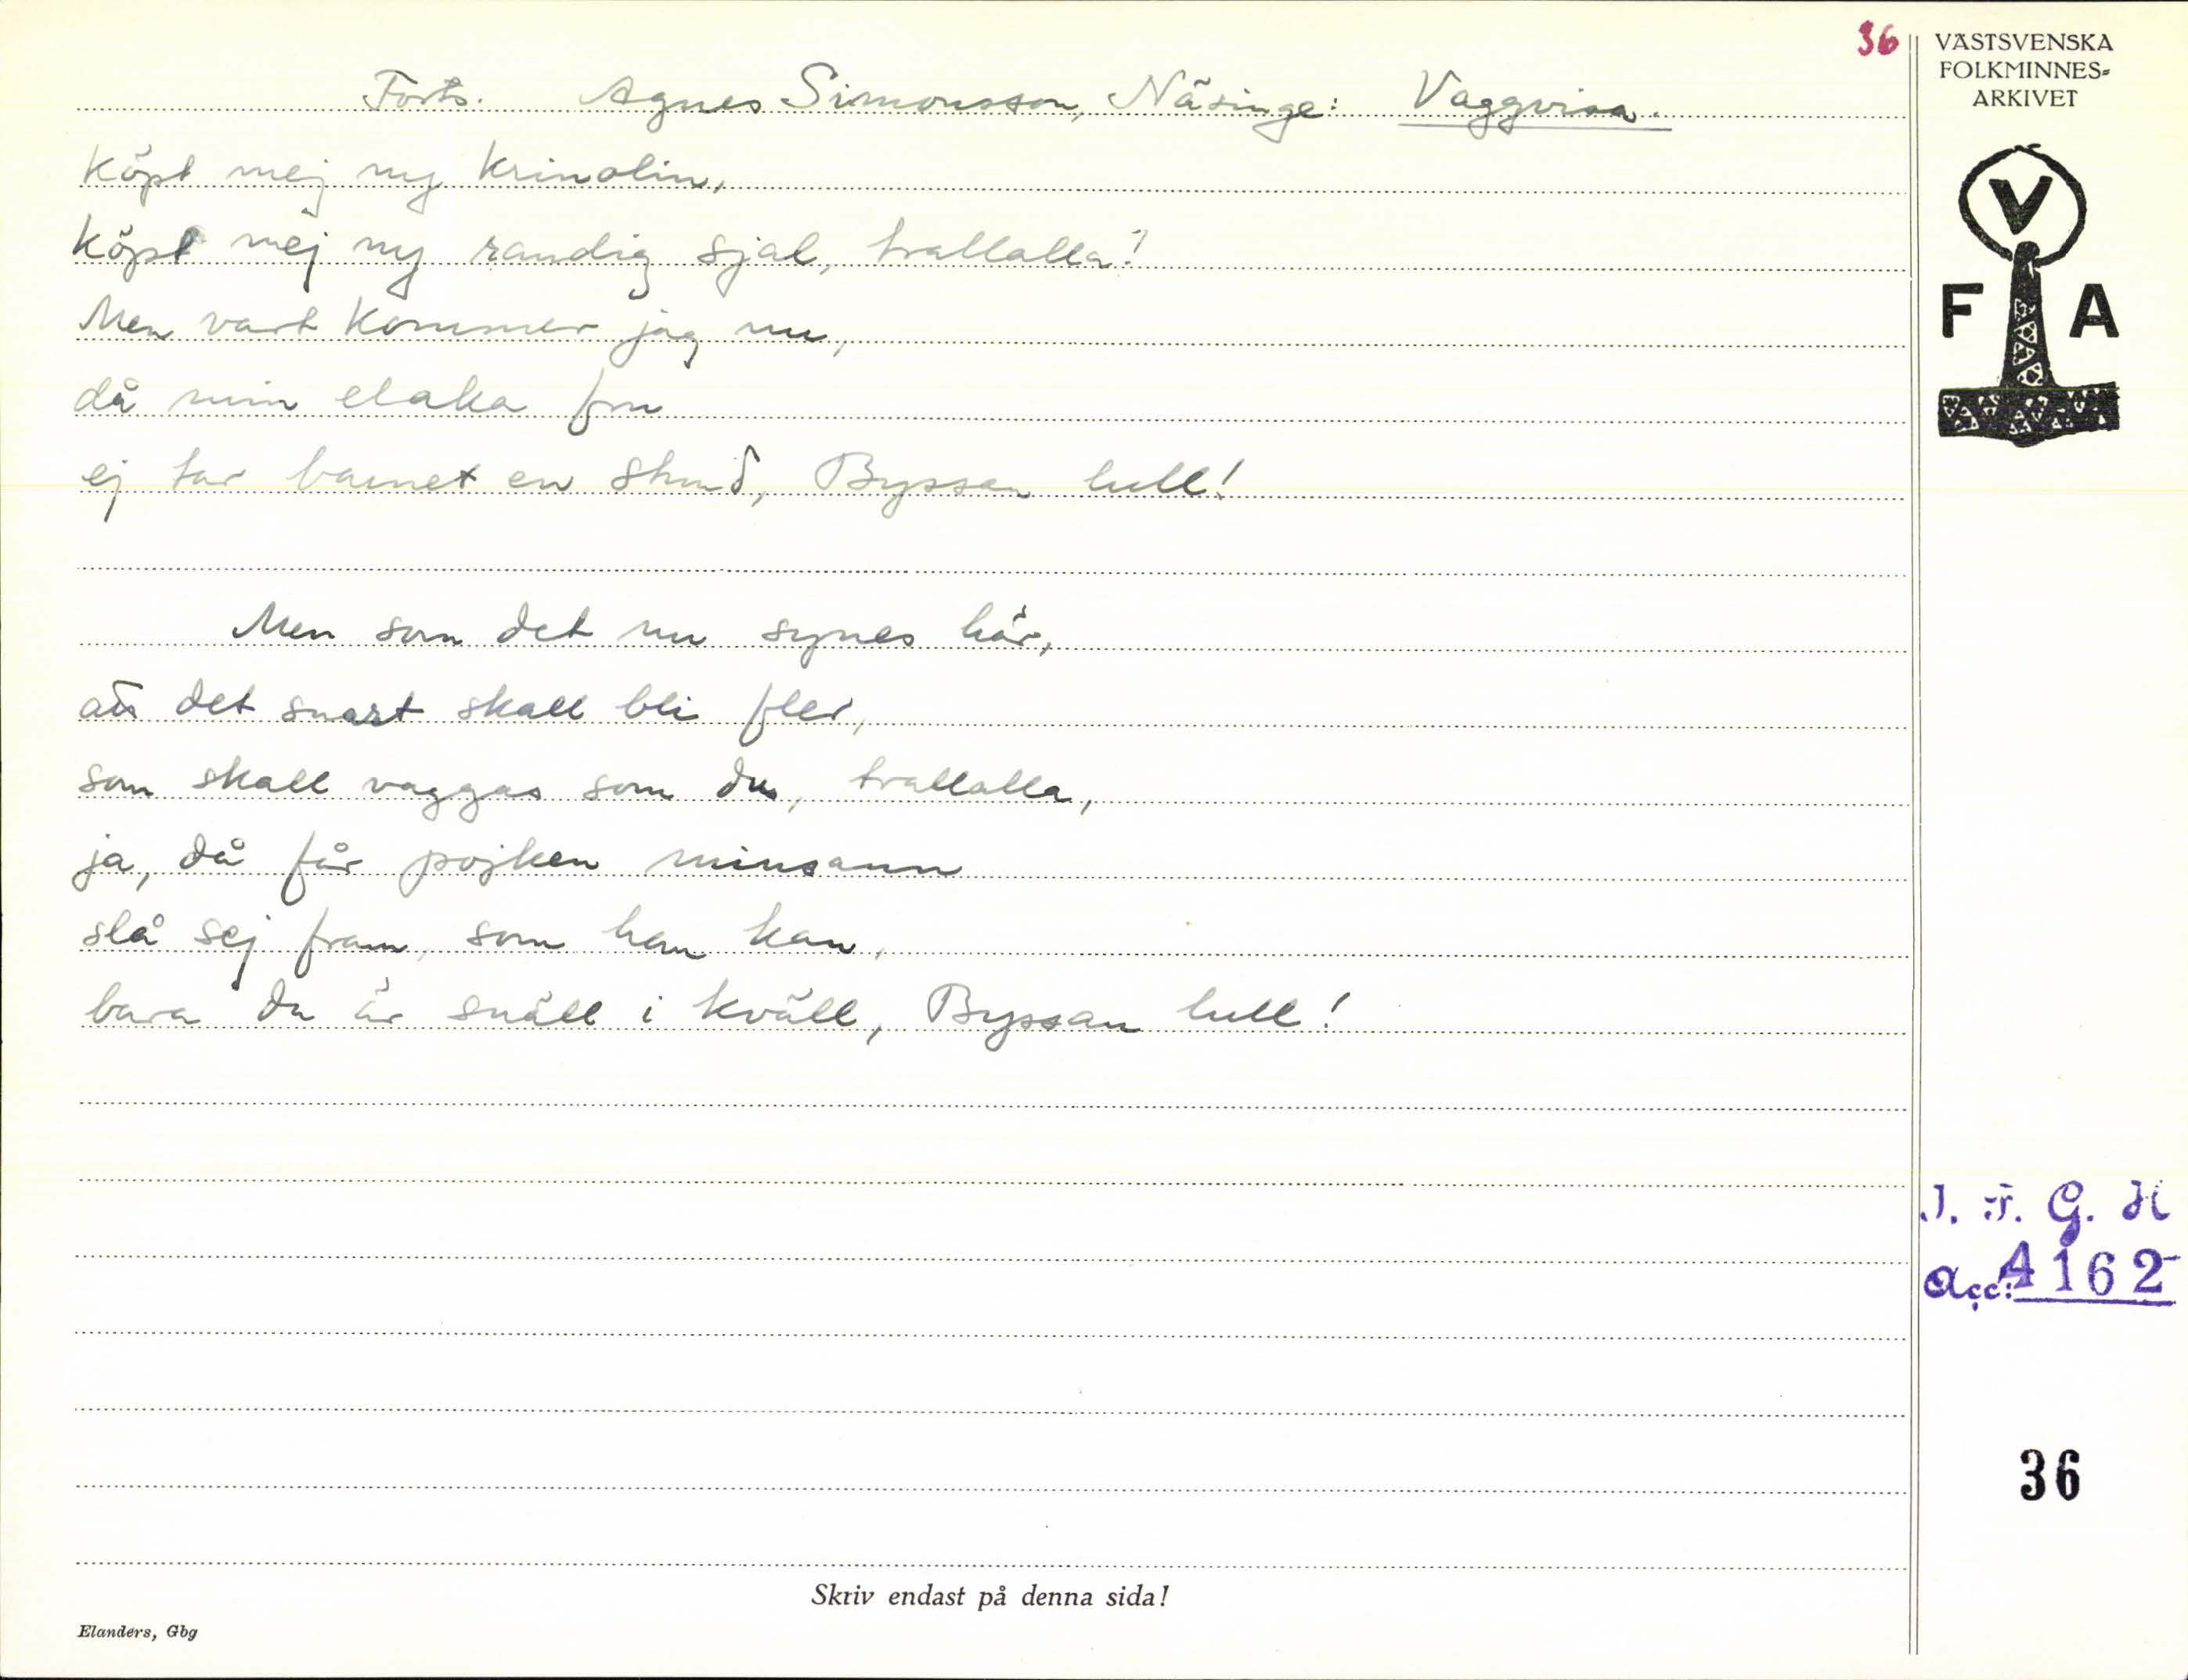 36
VÄSTSVENSKA
FOLKMINNES=
ARKIVET
Forts. Agnes Simonsson, Näsinge: Vaggvisa.
köpt mej ny krinolin,
köpt mej ny randig sjal, trallalla!
Men vart kommer jag nu,
då min elaka fru
ej tar barnet en stund, Byssan lull!
Men som det nu synes här,
att det snart skall bli fler,
som skall vaggas som du, trallalla,
ja, då får pojken minsann
slå sej fram, som han kan,
bara du är snäll i kväll, Byssan lull!
V
F A
I. F. G. H
Acc: 4162
36
Skriv endast på denna sida!
Elanders, Gbg